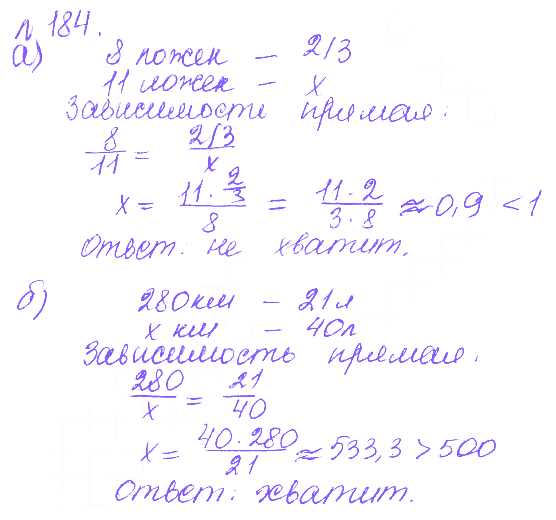 п 184.
а) 8 ложек — 2/3
11 ложек — x
Зависимость прямая.
8/11 = (2/3)/x
x = (11 · 2/3)/8 = (11 · 2)/(3 · 8) ≈ 0,9 < 1
Ответ: не хватит.
б) 280 км — 21 л
x км — 40 л
Зависимость прямая.
280/x = 21/40
x = (40 · 280)/21 ≈ 533,3 > 500
Ответ: хватит.